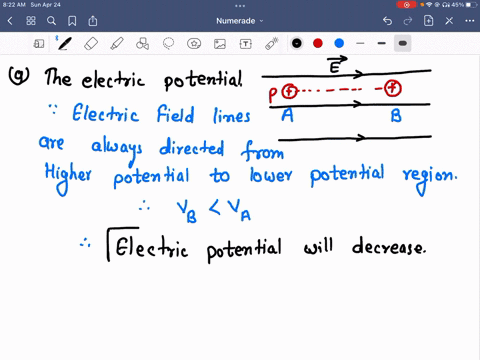 8:22 AM Sun Apr 24
45%
Numerade
(g) The electric potential.
E
P + + 
A B
∵ Electric field lines
are always directed from
Higher potential to lower potential region.
∴ V_B < V_A
∴ Electric potential will decrease.